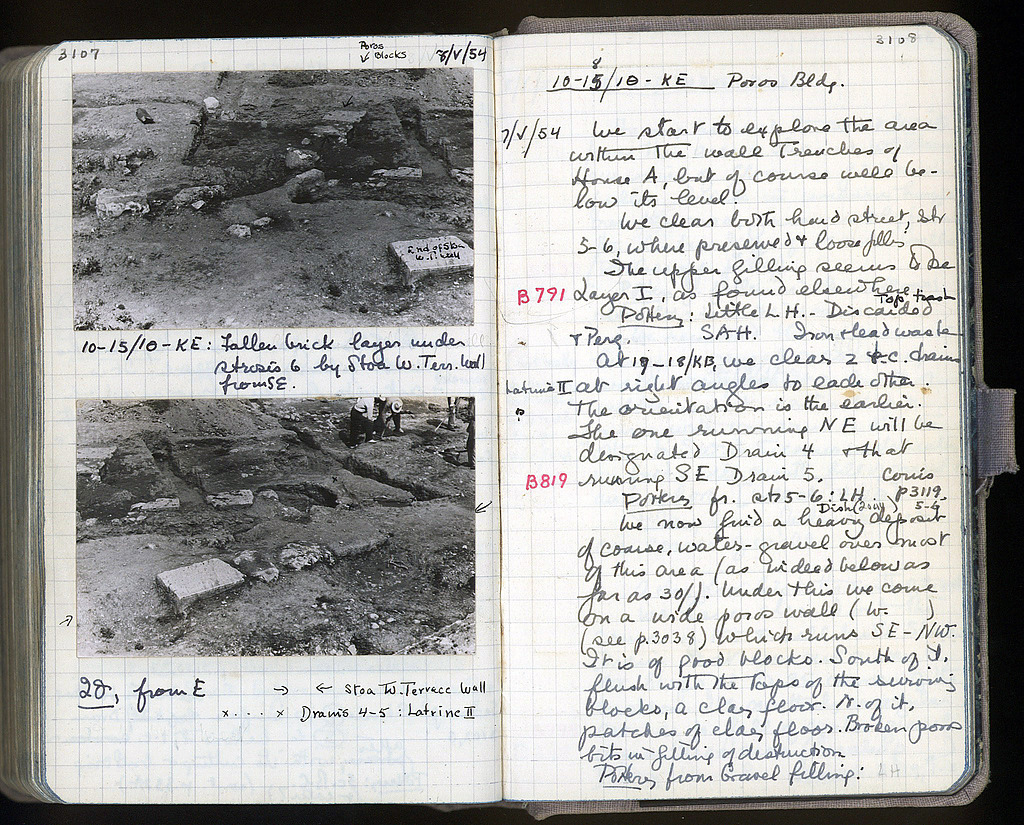 3107
Poros
Blocks
8/V/54
End of Stoa
W. T. Wall
10-15/10-KE: Fallen brick layer under
strosis 6 by Stoa W. Terr. Wall
from SE.
2d, from E
→ ← Stoa W. Terrace Wall
x. . . . x Drains 4-5: Latrine II
3108
8
10-15/10-KE Poros Bldg.
7/V/54 We start to explore the area
within the wall trenches of
House A, but of course well be-
low its level.
We clear both hard street, Str
5-6, where preserved & loose fills
The upper filling seems to be
B791 Layer I, as found elsewhere.
Top trash
Pottery: Little LH. - Discarded
& Perg. SAH. Iron & lead waste
At 19-18/KB, we clear 2 t.c. drains
Latrine II at right angles to each other.
The orientation is the earlier.
The one running NE will be
designated Drain 4 & that
B819 running SE Drain 5. Coins
Pottery fr. str 5-6: LH. p3119.
5-6
We now find a heavy deposit
of coarse, water-gravel over most
of this area (as indeed below as
far as 30/). Under this we come
on a wide poros wall (W. )
(see p.3038) which runs SE-NW.
It is of good blocks. South of it,
flush with the tops of the surviving
blocks, a clay floor. N. of it,
patches of clay floor. Broken poros
bits in filling of destruction
Pottery from Gravel filling: LH